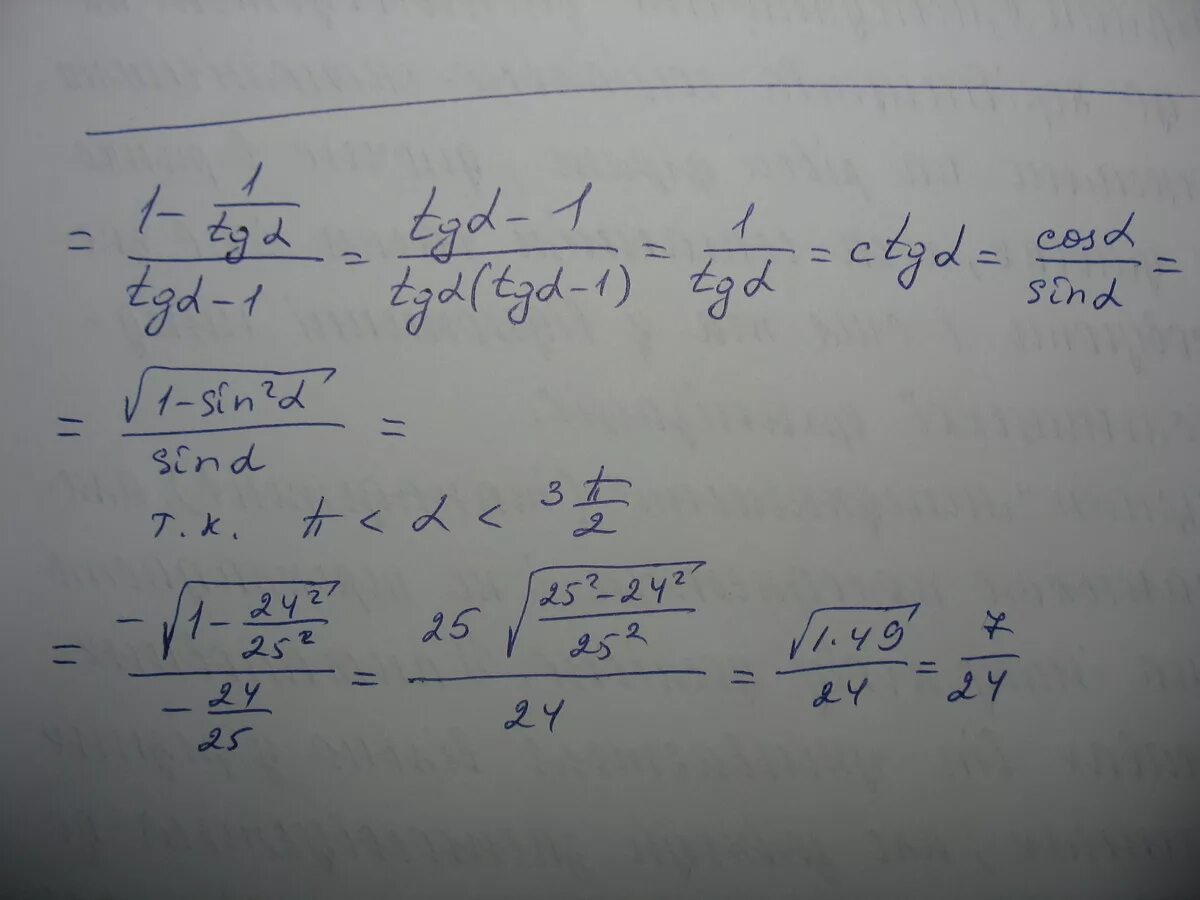 = (1 - 1/tgα)/(tgα - 1) = (tgα - 1)/(tgα(tgα - 1)) = 1/tgα = ctgα = cosα/sinα =
= √(1 - sin²α)/sinα =
т.к. π < α < 3π/2
= -√(1 - 24²/25²)/(-24/25) = 25√((25² - 24²)/25²)/24 = √(1·49)/24 = 7/24